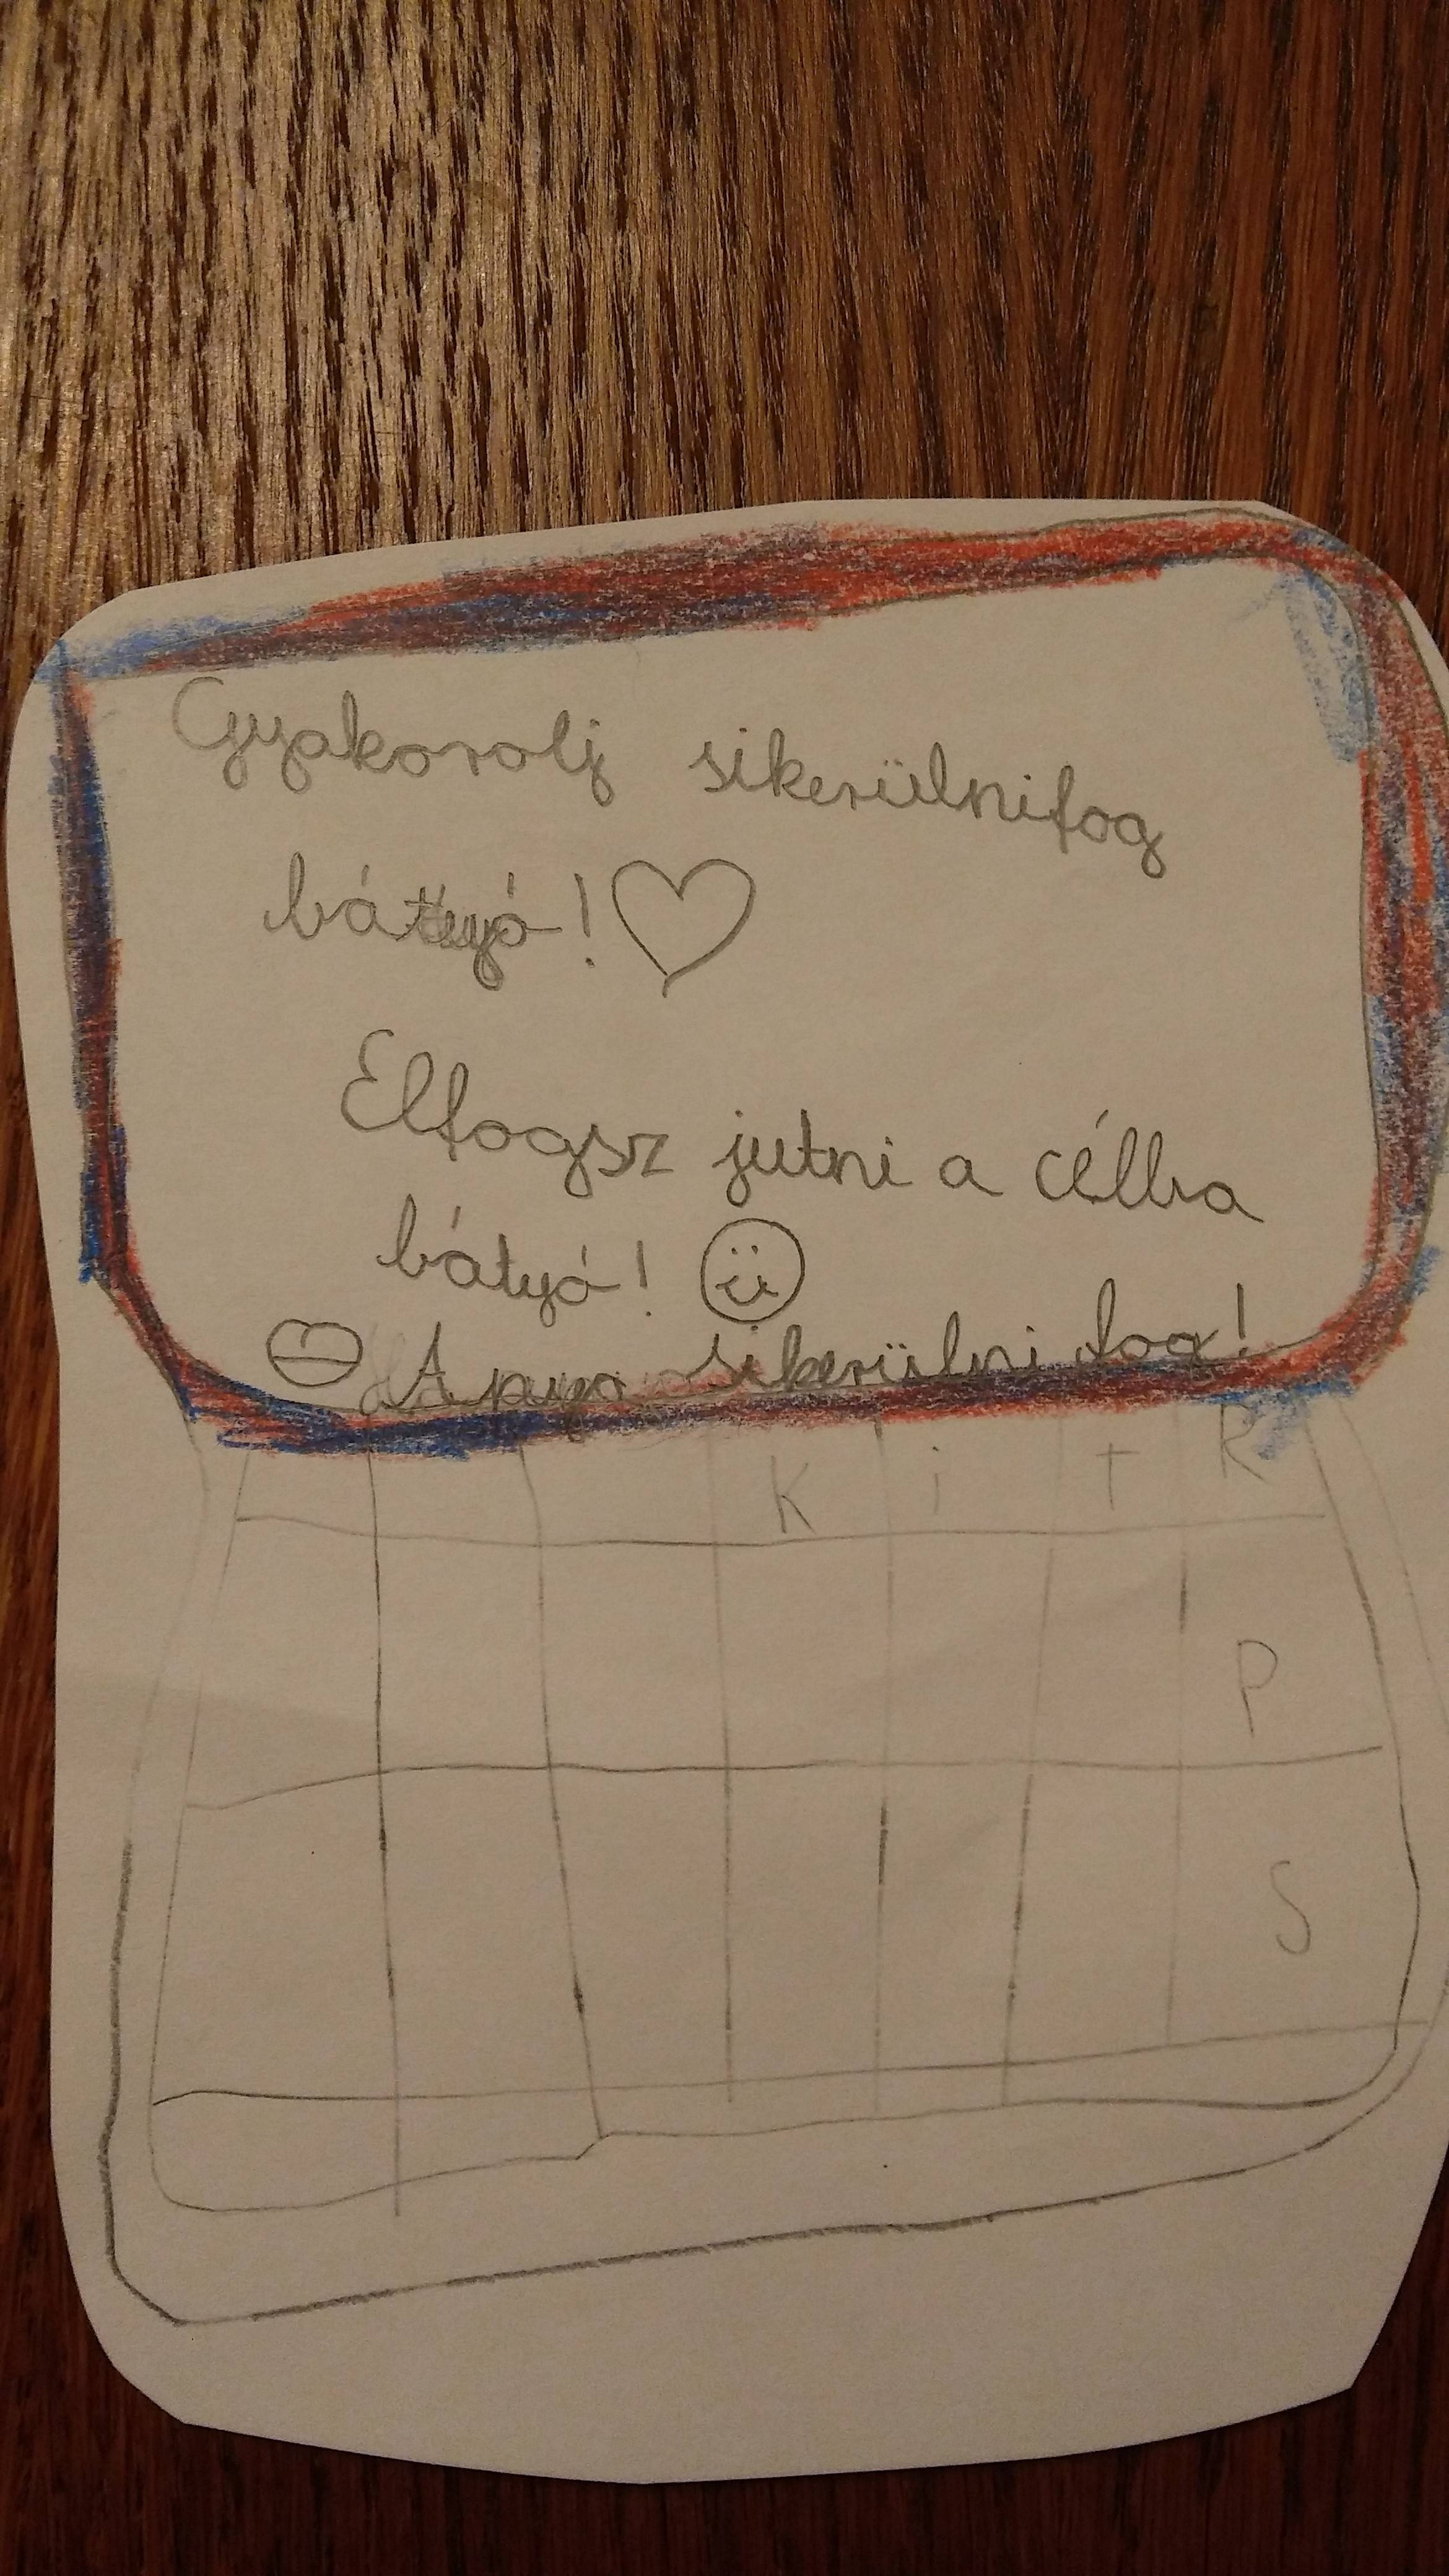 Gyakorolj sikerülnifog
bátyó!
Elfogsz jutni a célba
bátyó!
A puga sikerülni fog!
K i T R
P
S